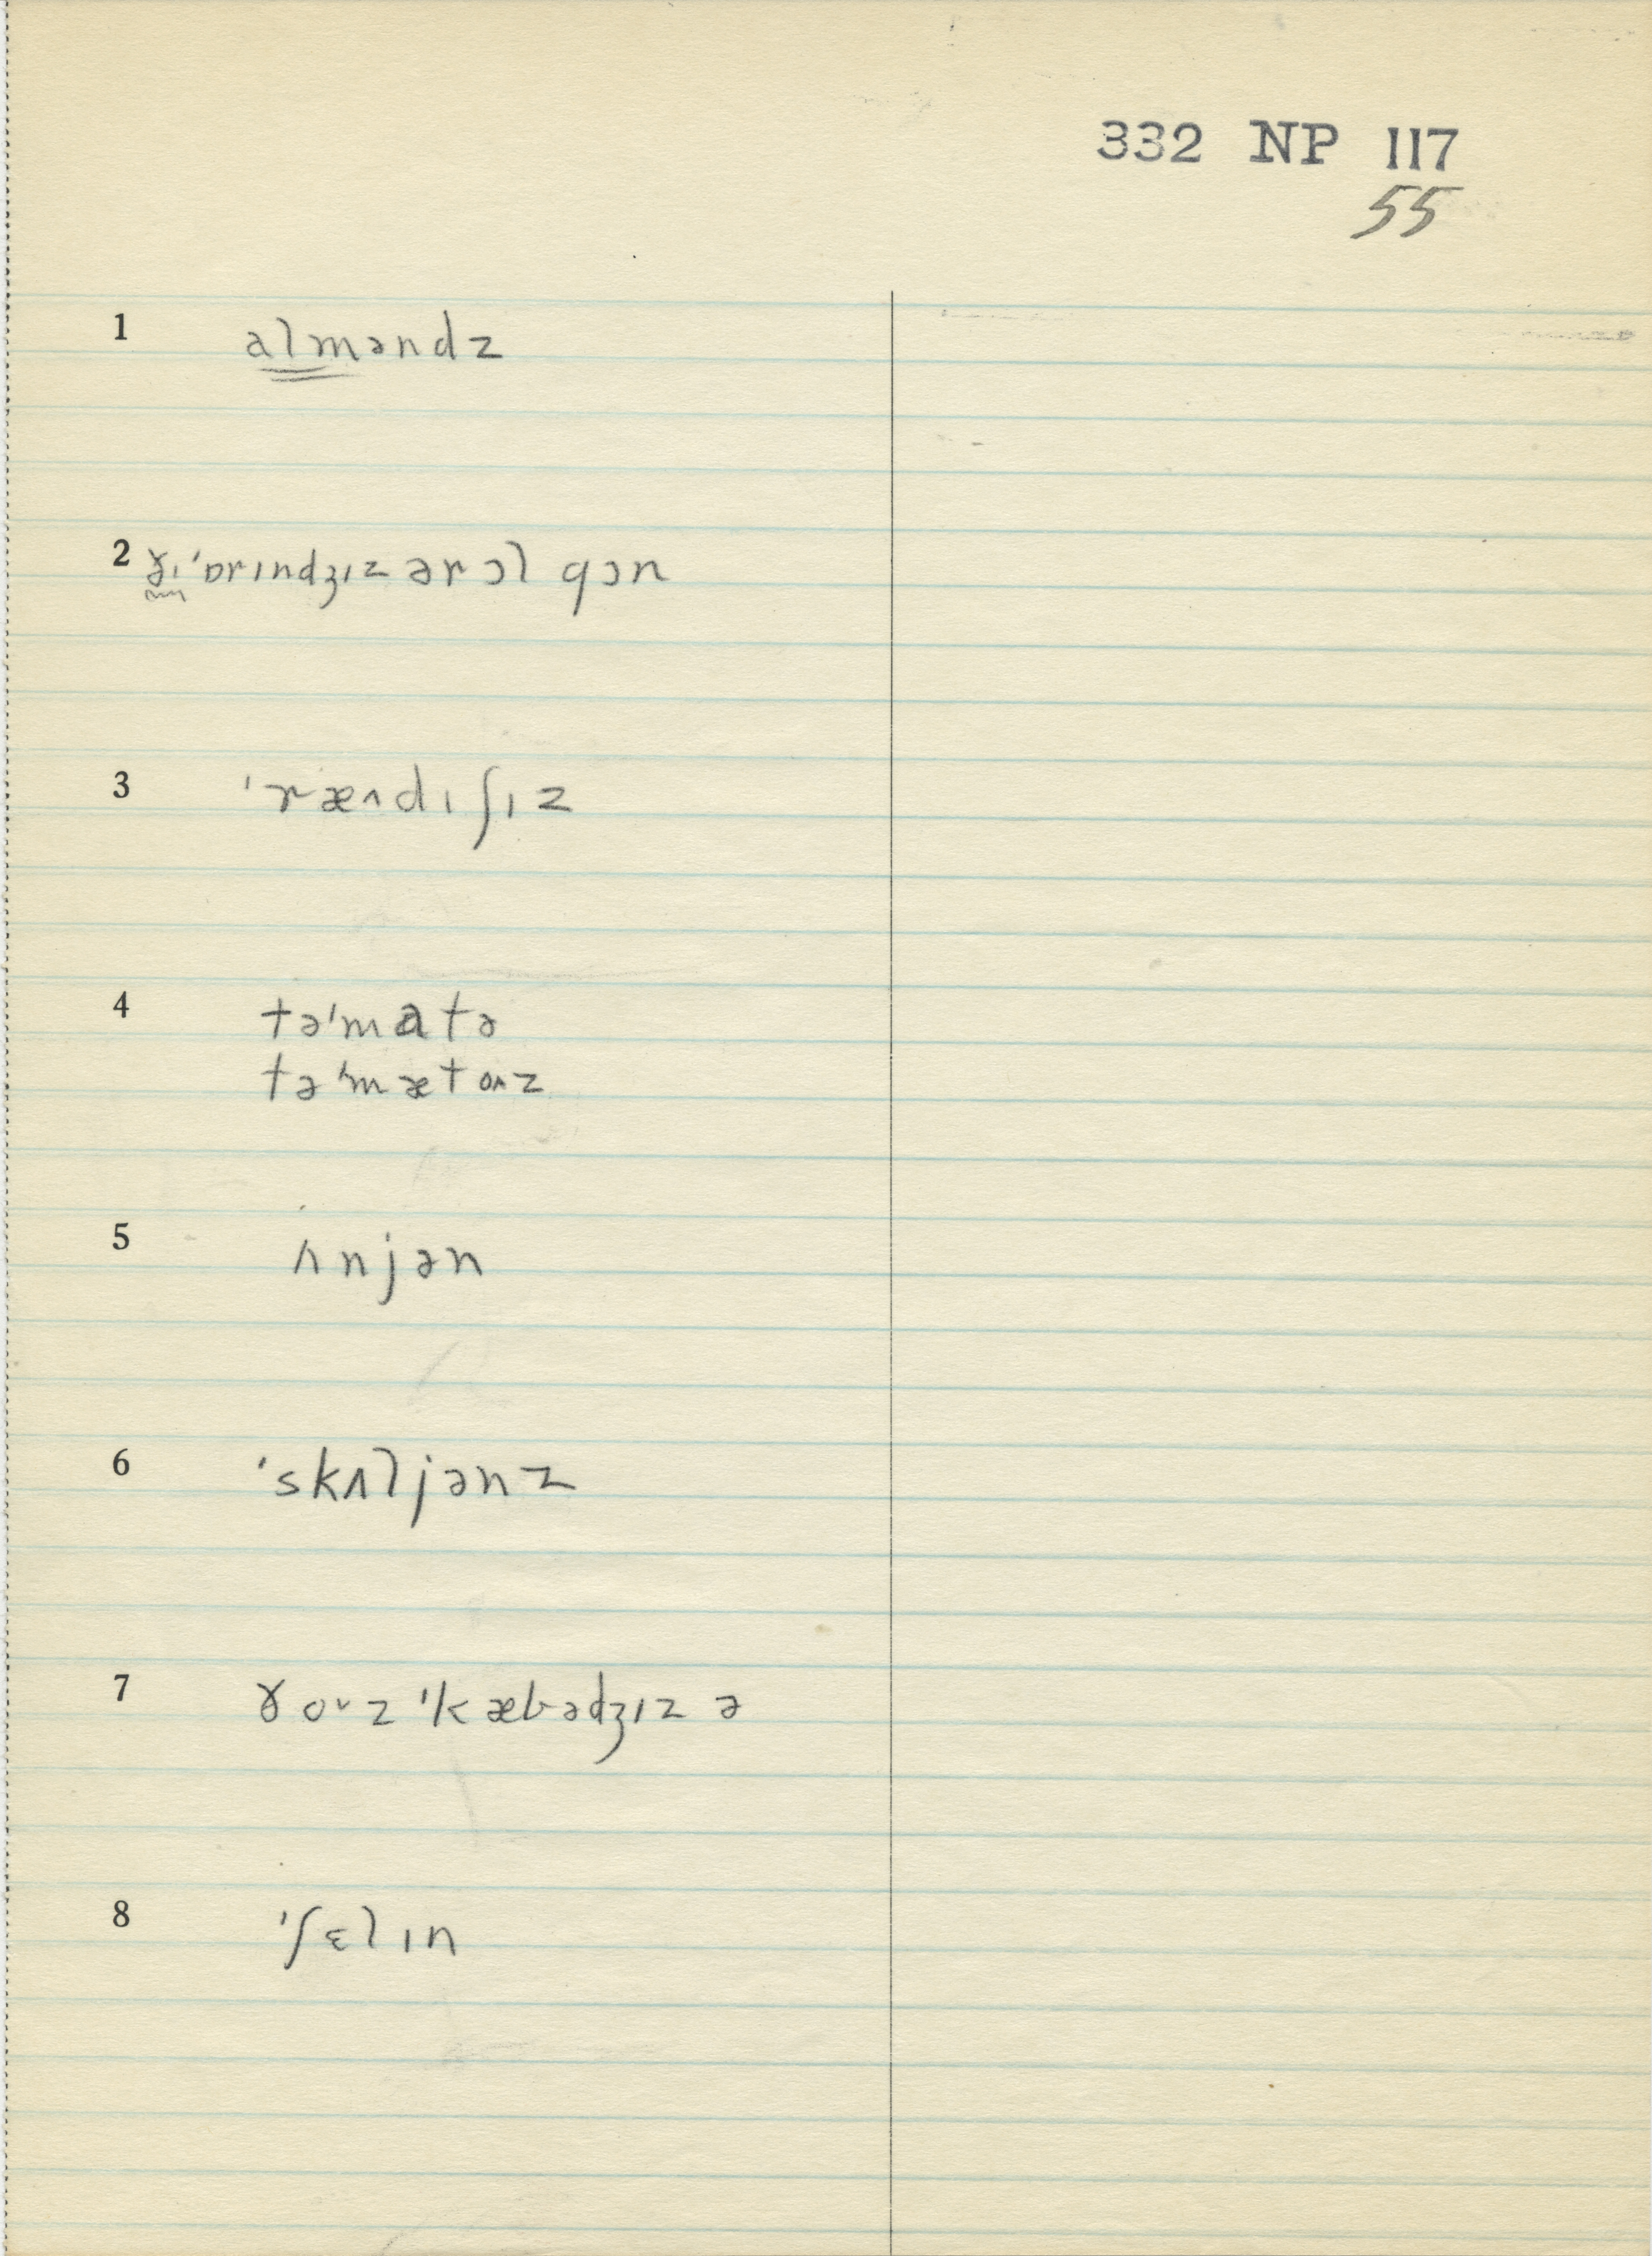 332 NP 117
55
1 alməndz
2 ɣɪ ˈɒrɪndʒɪz ər ɔl gɔn
3 ˈræ^dɪʃɪz
4 təˈmatə
təˈmætoʌz
5 ʌnjən
6 ˈskʌljənz
7 ɣoᵛz ˈkæbədʒɪz ə
8 ˈʃɛlɪn